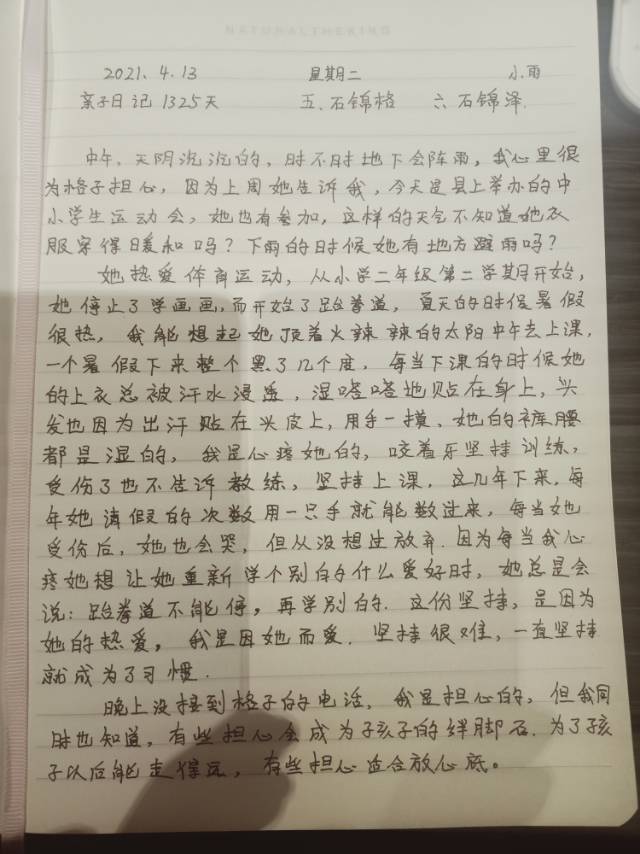 NATURALTHEKING
2021.4.13 星期二 小雨
亲子日记1325天 五.石锦格 六石锦泽.
中午,天阴沉沉的,时不时地下会阵雨,我心里很
为格子担心,因为上周她告诉我,今天是县上举办的中
小学生运动会,她也有参加,这样的天气不知道她衣
服穿得暖和吗?下雨的时候她有地方避雨吗?
她热爱体育运动,从小学二年级第二学期开始,
她停止了学画画,而开始了跆拳道,夏天的时候暑假
很热,我能想起她顶着火辣辣的太阳中午去上课,
一个暑假下来整个黑了几个度,每当下课的时候她
的上衣总被汗水浸透,湿嗒嗒地贴在身上,头
发也因为出汗贴在头皮上,用手一摸、她的裤腰
都是湿的,我是心疼她的,咬着牙坚持训练,
受伤了也不告诉教练,坚持上课,这几年下来,每
年她请假的次数用一只手就能数过来,每当她
受伤后,她也会哭,但从没想过放弃.因为每当我心
疼她想让她重新学个别的什么爱好时,她总是会
说:跆拳道不能停,再学别的.这份坚持,是因为
她的热爱,我是因她而爱.坚持很难,一直坚持
就成为了习惯.
晚上没接到格子的电话,我是担心的,但我同
时也知道,有些担心会成为孩子的绊脚石.为了孩
子以后能走得远,有些担心适合放心底。